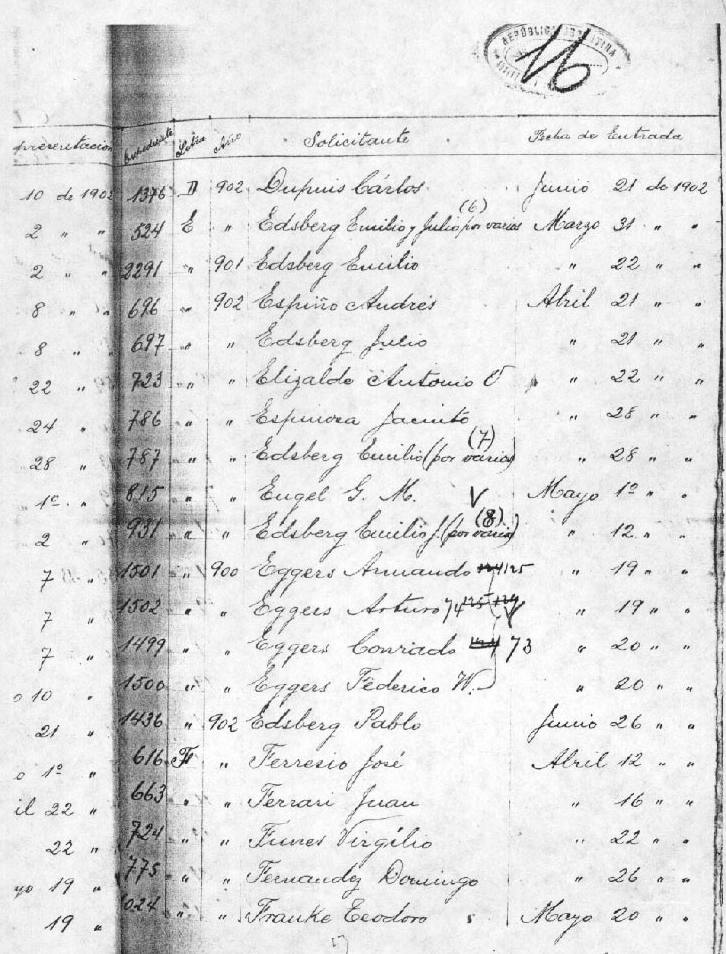 REPÚBLICA ARGENTINA
16
presentacion Expediente Letra Año Solicitante Fecha de Entrada
10 de 1902 1376 D 902 Dupuis Cárlos Junio 21 de 1902
2 " " 524 E " Edsberg Emilio y Julio (por varios (6) Marzo 31 " "
2 " " 2291 " 901 Edsberg Emilio " 22 " "
8 " " 696 " 902 Espiño Andrés Abril 21 " "
8 " 697 " " Edsberg Julio " 21 " "
22 " 723 " " Elizalde Antonio V " 22 " "
24 " 786 " " Espinosa Jacinto " 28 " "
28 " 787 " " Edsberg Emilio (por varios) (7) " 28 " "
1º " 815 " " Engel G. M. V Mayo 1º " "
2 " 931 " " Edsberg Emilio J. (por varios) (8) " 12 " "
7 " 1501 " 900 Eggers Armando 124 125 " 19 " "
7 " 1502 " " Eggers Arturo 74 125 124 " 19 " "
7 " 1499 " " Eggers Conrado 124 73 " 20 " "
o 10 " 1500 " " Eggers Federico W. " 20 " "
21 " 1436 " 902 Edsberg Pablo Junio 26 " "
o 1º " 616 F " Ferresio José Abril 12 " "
il 22 " 663 " " Ferrari Juan " 16 " "
22 " 724 " " Funes Virgílio " 22 " "
yo 19 " 775 " " Fernandez Domingo " 26 " "
19 " 024 " " Franke Teodoro s Mayo 20 " "